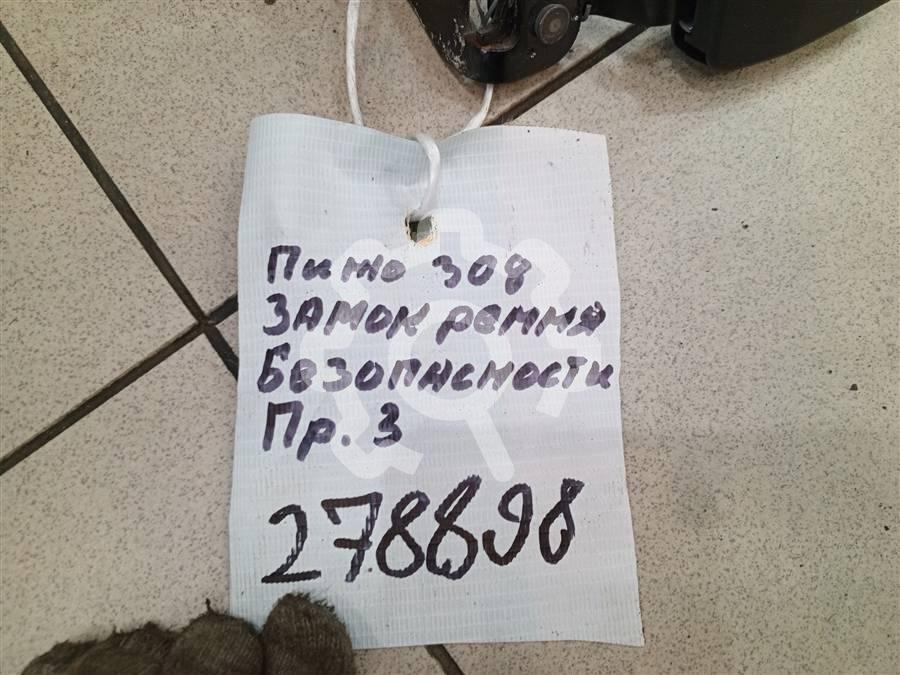 Пижо 308
Замок ремня
Безопасности
Пр. З
278898